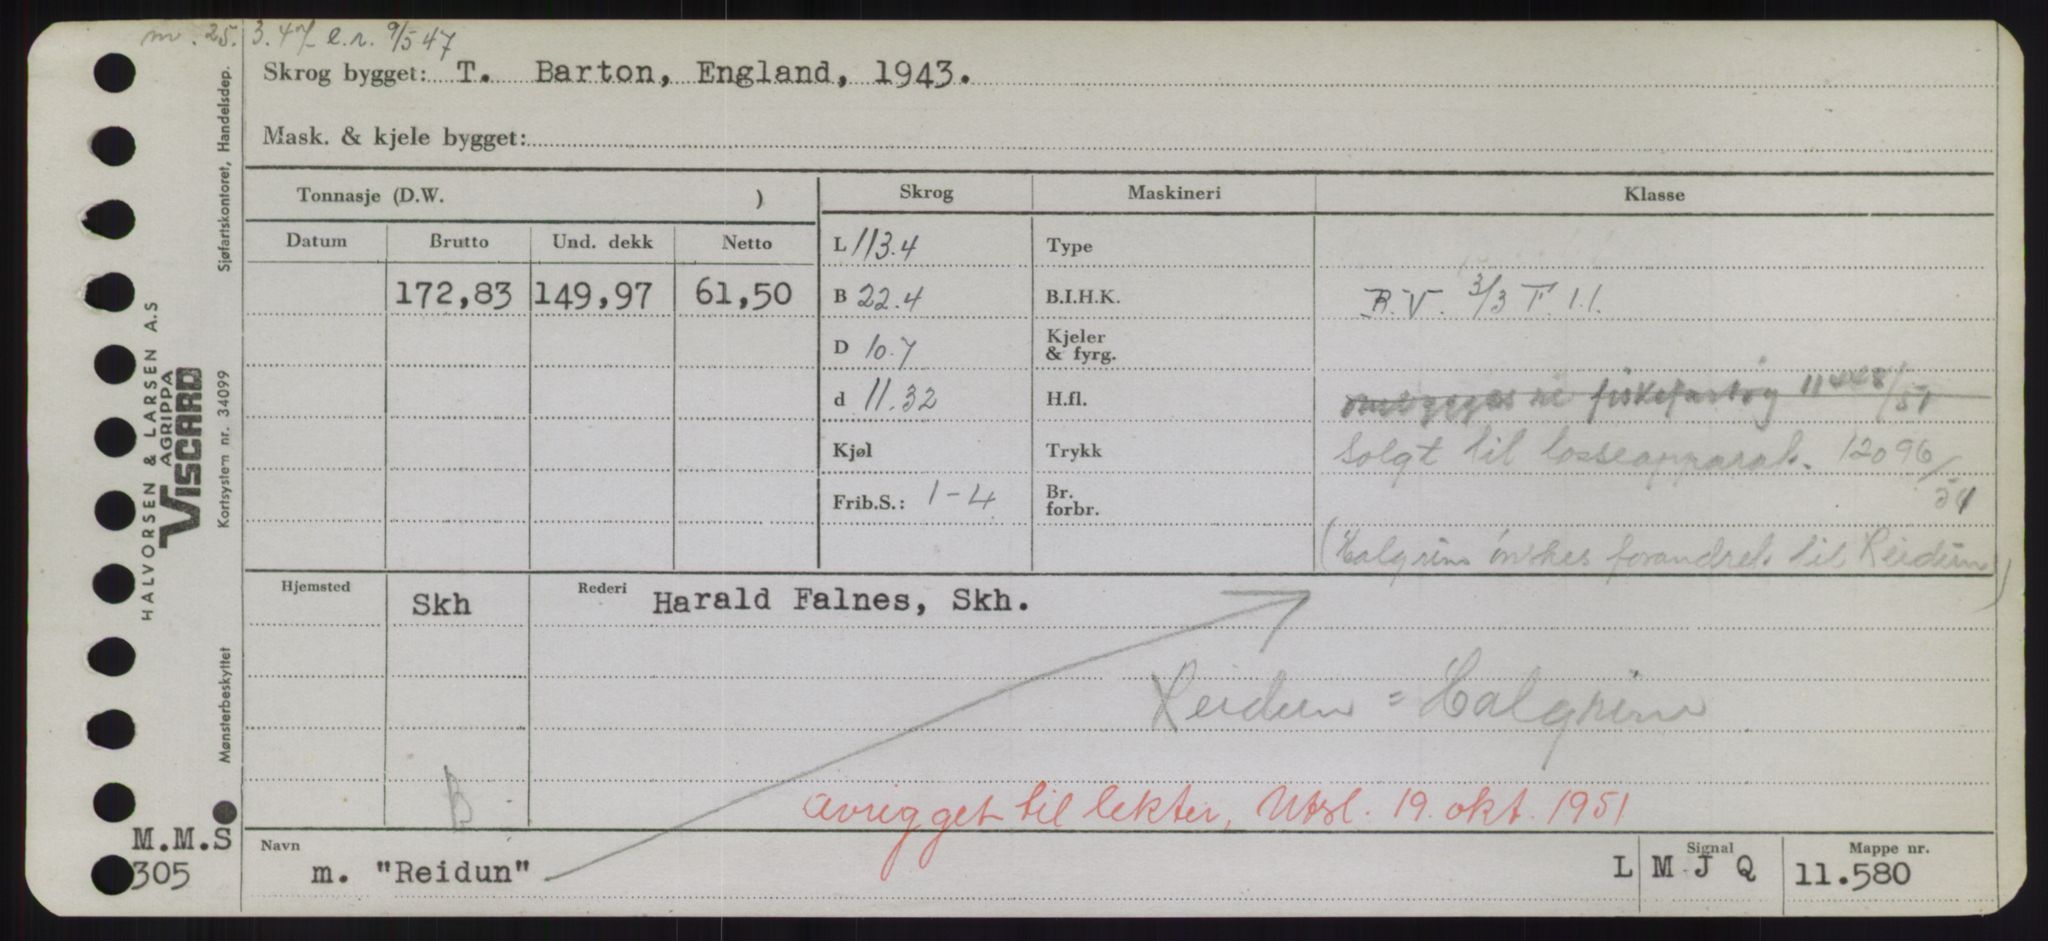 25. 3.47 e.r. 9/5 47
Skrog bygget: T. Barton, England, 1943.
Mask. & kjele bygget:
Tonnasje (D.W. )
Skrog
Maskineri
Klasse
Datum
Brutto
Und. dekk
Netto
L 113.4
Type
172,83
149,97
61,50
B 22.4
B.I.H.K.
B.V. 3/3 T. 1.1.
D 10.7
Kjeler
& fyrg.
d 11.32
H.fl.
fiskefartøy 11448/51
Kjøl
Trykk
Solgt til losseapparat. 12096/51
Frib.S.: 1-4
Br.
forbr.
(Halgrim ønskes forandret til Reidun)
Hjemsted
Skh
Rederi
Harald Falnes, Skh.
Reidun = Halgrim
B
avrigget til lekter, Utsl. 19. okt. 1951
M.M.S
305
Navn
m. "Reidun"
Signal
L M J Q
Mappe nr.
11.580
HALVORSEN & LARSEN A.S
AGRIPPA
VISCARD
Sjøfartskontoret, Handelsdep.
Kortsystem nr. 34099
Mønsterbeskyttet